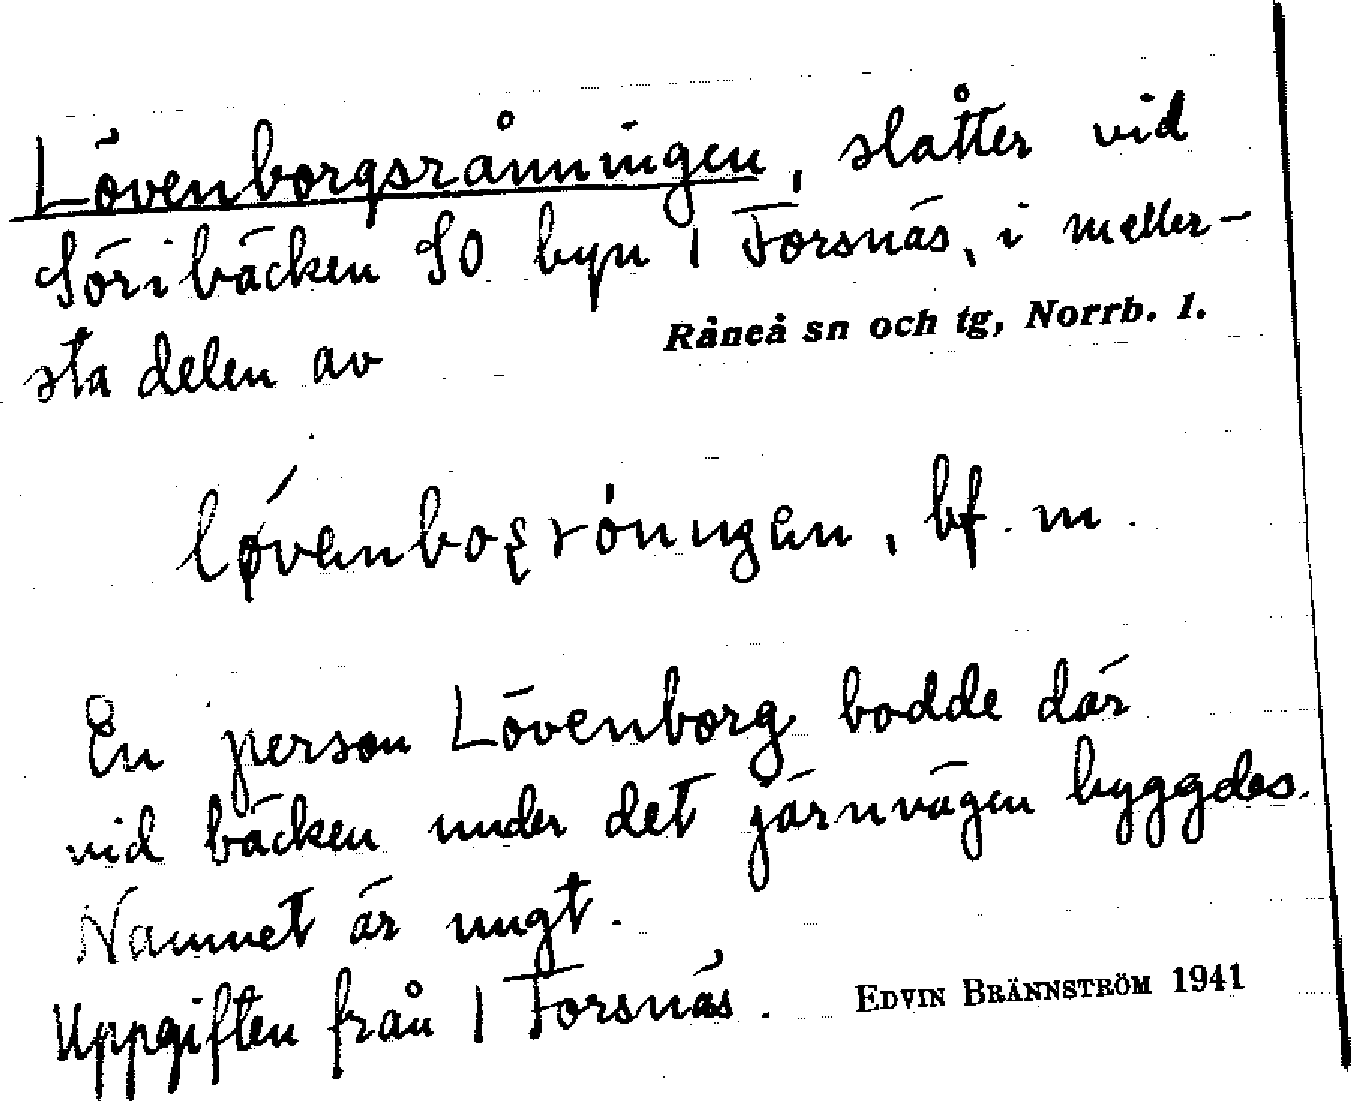 Lövenborgsrånningen, slåtter vid
Söribäcken SO byn 1 Forsnäs, i meller-
sta delen av
Råneå sn och tg, Norrb. l.
bf. m.
En person Lövenborg bodde där
vid bäcken under det järnvägen byggdes.
Namnet är ungt.
Uppgiften från 1 Forsnäs.
EDVIN BRÄNNSTRÖM 1941